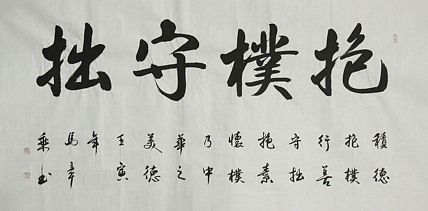 抱樸守拙
積德
抱樸
行善
守拙
抱素
懷樸
乃中
華之
美德
壬寅
年
馬幸
乘书